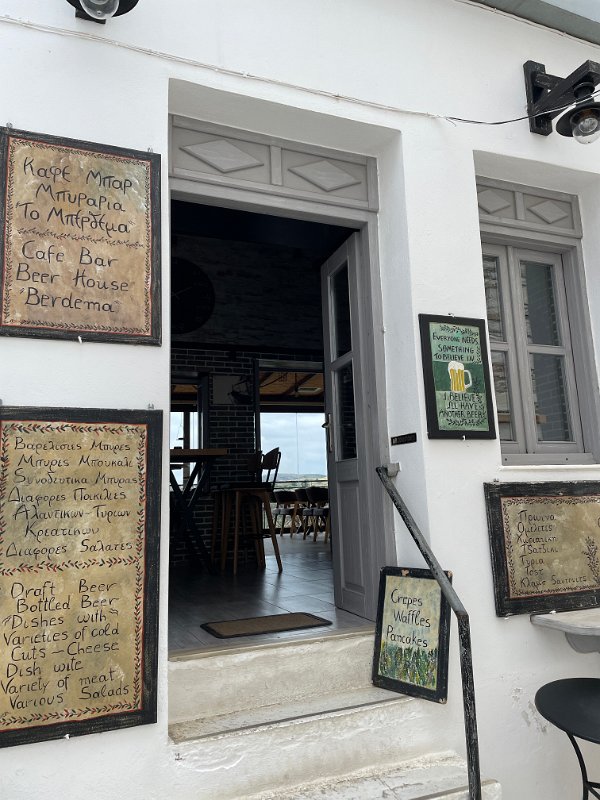 Καφε Μπαρ
Μπυραρια
"Το Μπερδεμα"
Cafe Bar
Beer House
"Berdema"
Βαρελισιες Μπυρες
Μπυρες Μπουκαλι
Συνοδευτικα Μπυρας
Διαφορες Ποικιλιες
Αλαντικων-Τυριων
Κρεατικων
Διαφορες Σαλατες
Draft Beer
Bottled Beer
"Dishes with
Varieties of cold
Cuts - Cheese
Dish wite
Variety of meat
Various Salads
Everyone needs
something
to believe in
I believe
I'll have
another beer
Crepes
Waffles
Pancakes
Πρωινα
Ομελετες
Χωριατικη
Τσατσικι
Τυρια
Τοστ
Κλαμπ Σαντουιτς